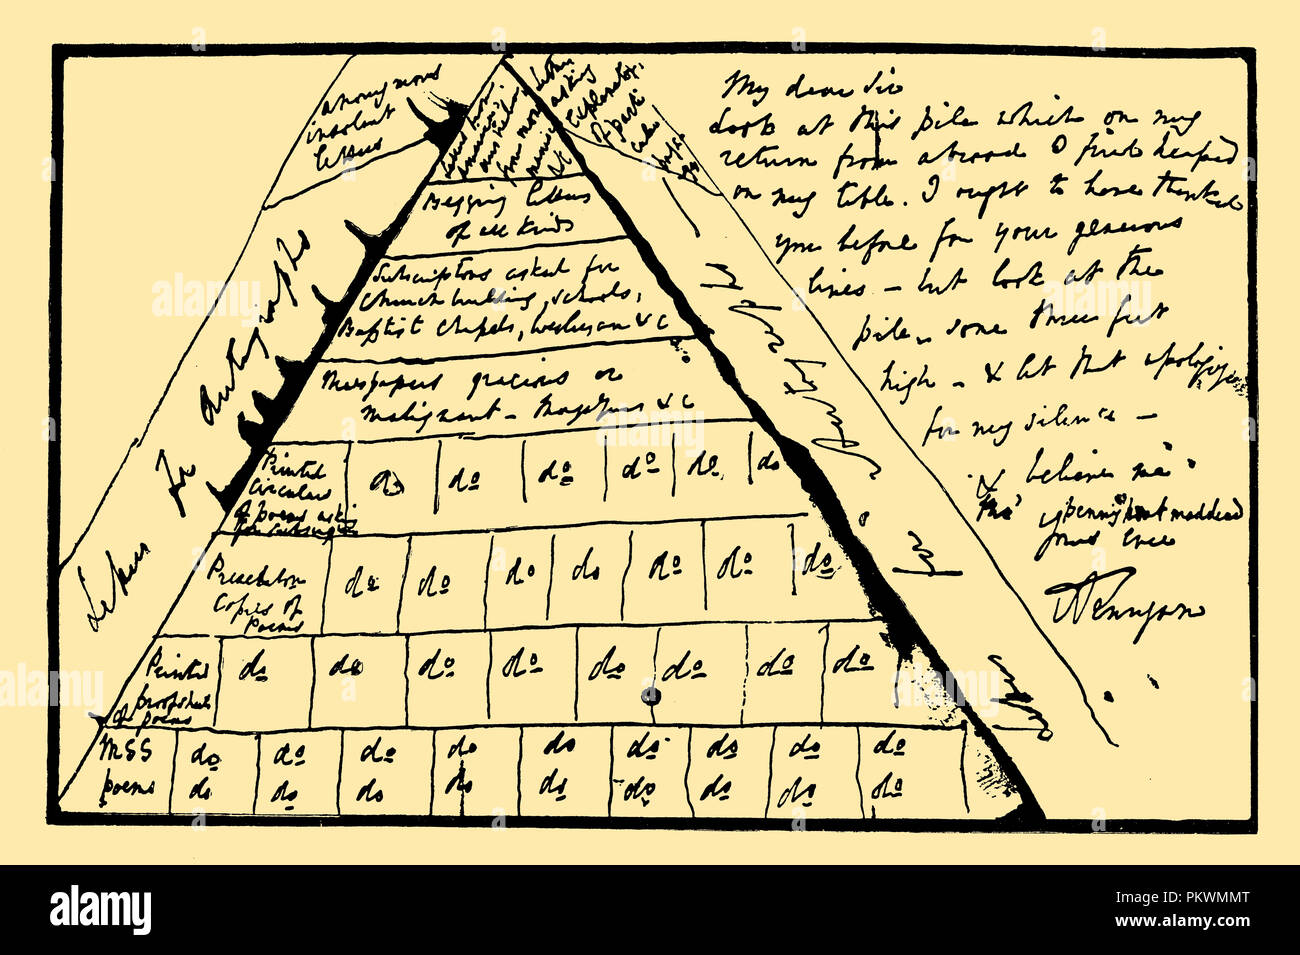 anonymous
insolent
letters
Letters for Autographs
Letters from
America
Australia
from monomaniacs
&c
Letters
asking
explanations
of particular
passages
Begging letters
of all kinds
Subscriptions asked for
Church building, schools,
Baptist Chapels, Wesleyan &c
Newspapers gracious or
malignant - Magazines &c
Printed
Circulars
of poems asking
for subscription
do do do do do do
Presentation
Copies of
Poems
do do do do do do do
Printed
proofsheets
of poems
do do do do do do do do
MSS do do do do do do do do do
poems do do do do do do do do do
My dear Sir
Look at this pile which on my
return from abroad I find heaped
on my table. I ought to have thanked
you before for your generous
lines - but look at the
pile, some three feet
high - & let that apologize
for my silence -
& believe me
tho' penny post maddened
Yours ever
A Tennyson
alamy
alamy
alamy
alamy
alamy
alamy
alamy
Image ID: PKWMMT
www.alamy.com